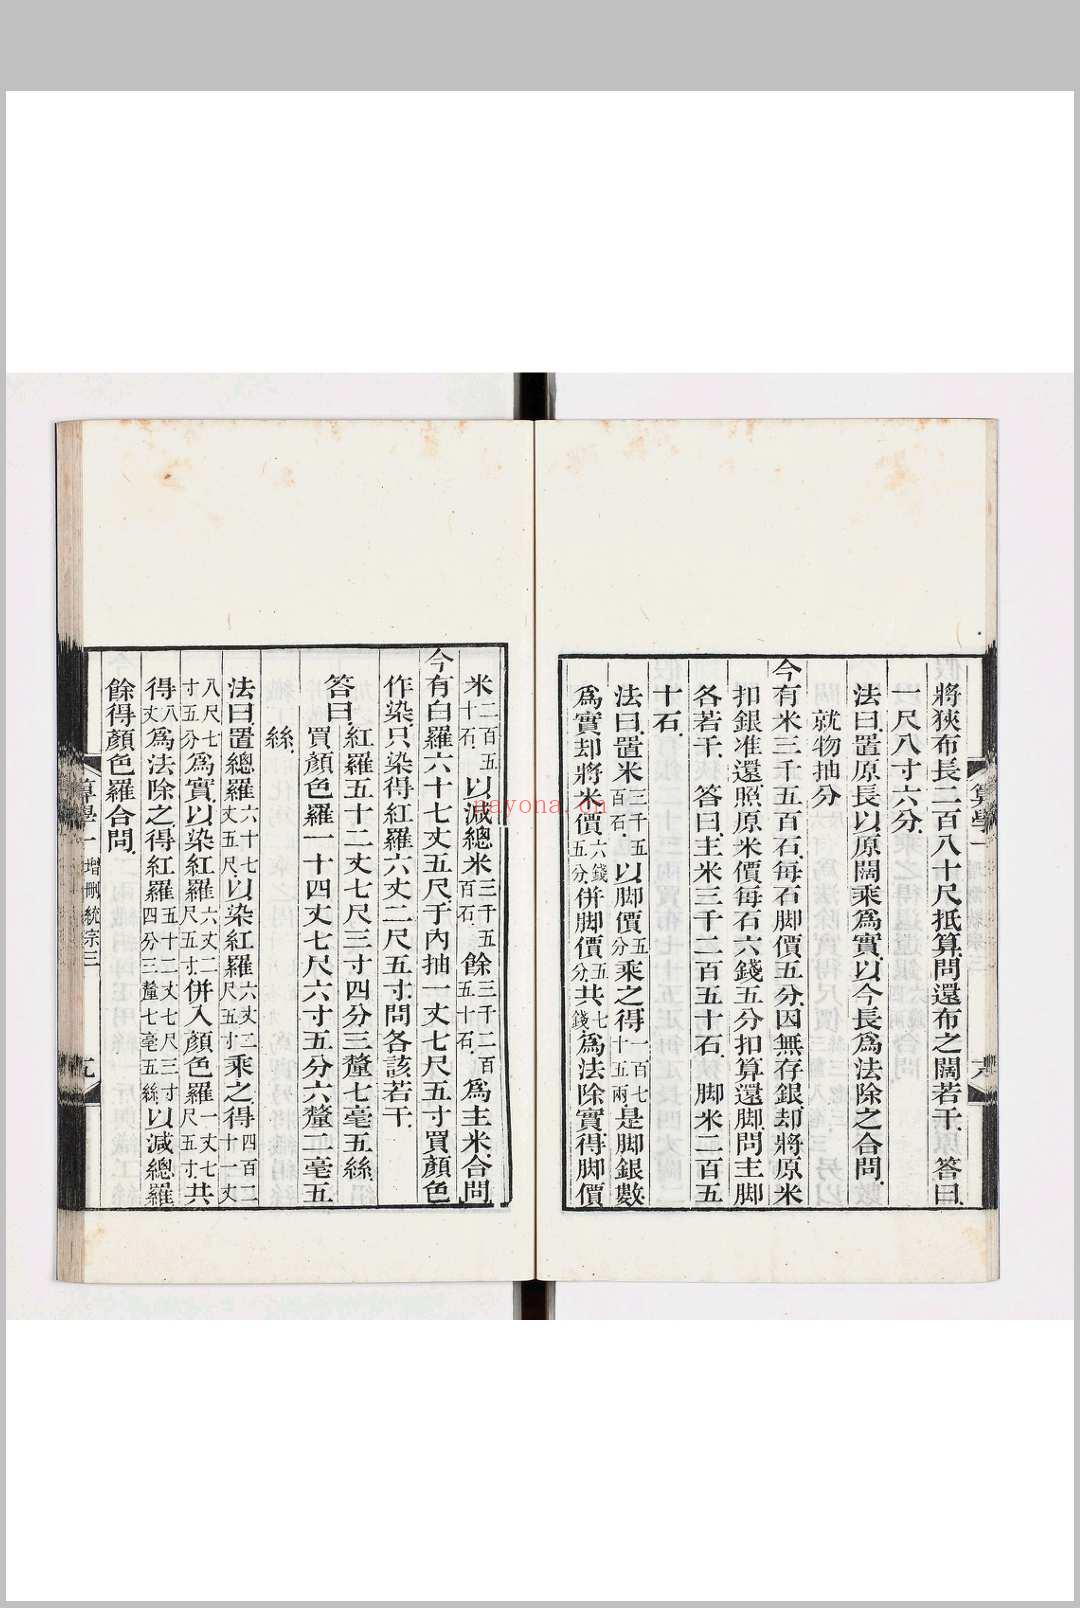 將狹布長二百八十尺抵算問還布之闊若干 答曰
一尺八寸六分
法曰置原長以原闊乘爲實以今長爲法除之合問
就物抽分
今有米三千五百石每石脚價五分因無存銀却將原米
扣銀准還照原米價每石六錢五分扣算還脚問主脚
各若干 答曰主米三千二百五十石 脚米二百五
十石
法曰置米三千五百石以脚價五分乘之得一百七十五兩是脚銀數
爲實却將米價六錢五分併脚價五分共七錢爲法除實得脚價
算學一
米二百五十石以減總米三千五百石餘三千二百五十石爲主米合問
今有白羅六十七丈五尺于內抽一丈七尺五寸買顏色
作染只染得紅羅六丈二尺五寸問各該若干
答曰紅羅五十二丈七尺三寸四分三釐七毫五絲
買顏色羅一十四丈七尺六寸五分六釐二毫五
絲
法曰置總羅六十七丈五尺以染紅羅六丈二尺五寸乘之得四百二十一丈
八尺七寸五分爲實以染紅羅六丈二尺五寸併入顏色羅一丈七尺五寸共
得八丈爲法除之得紅羅五十二丈七尺三寸四分三釐七毫五絲以減總羅
餘得顏色羅合問
算學一 增刪統宗三 九
nayona.cn